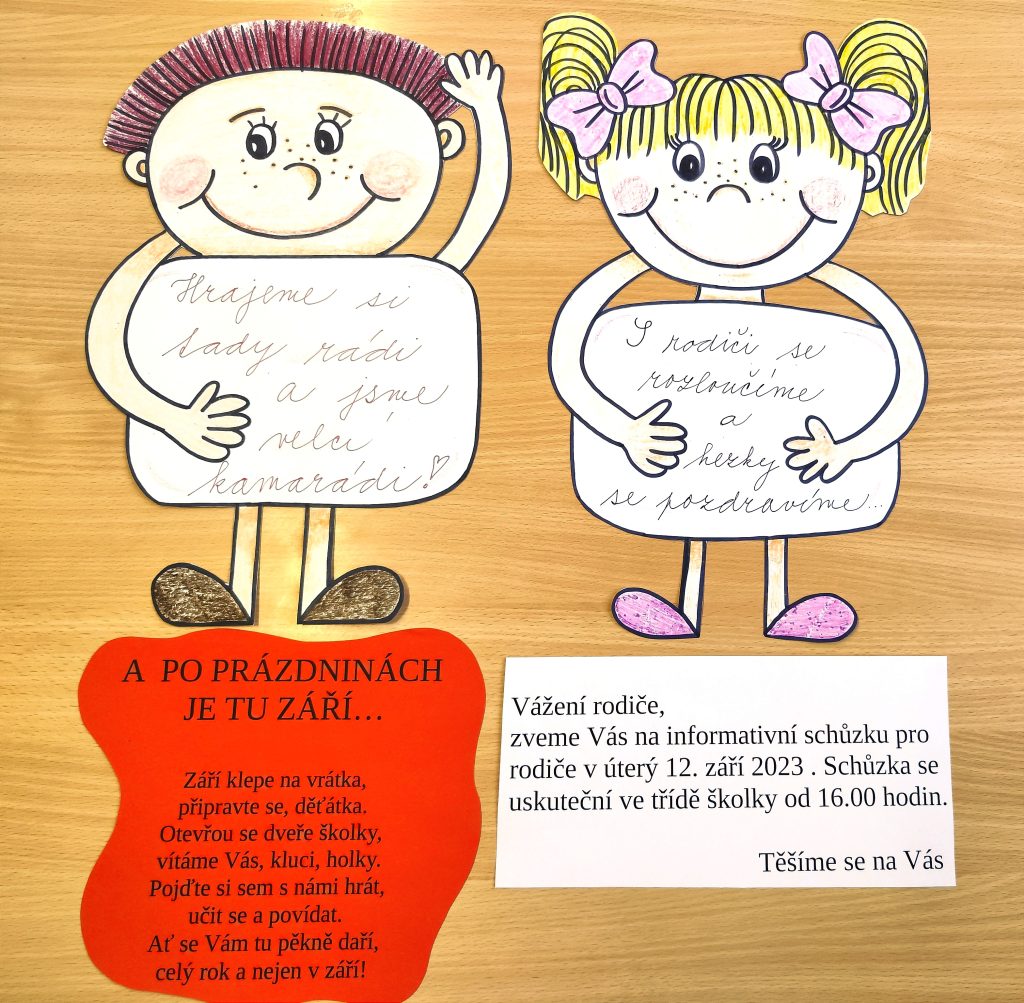 Hrajeme si
tady rádi
a jsme
velcí
kamarádi!
S rodiči se
rozloučíme
a
hezky
se pozdravíme...
A PO PRÁZDNINÁCH
JE TU ZÁŘÍ...
Září klepe na vrátka,
připravte se, děťátka.
Otevřou se dveře školky,
vítáme Vás, kluci, holky.
Pojďte si sem s námi hrát,
učit se a povídat.
Ať se Vám tu pěkně daří,
celý rok a nejen v září!
Vážení rodiče,
zveme Vás na informativní schůzku pro
rodiče v úterý 12. září 2023 . Schůzka se
uskuteční ve třídě školky od 16.00 hodin.
Těšíme se na Vás